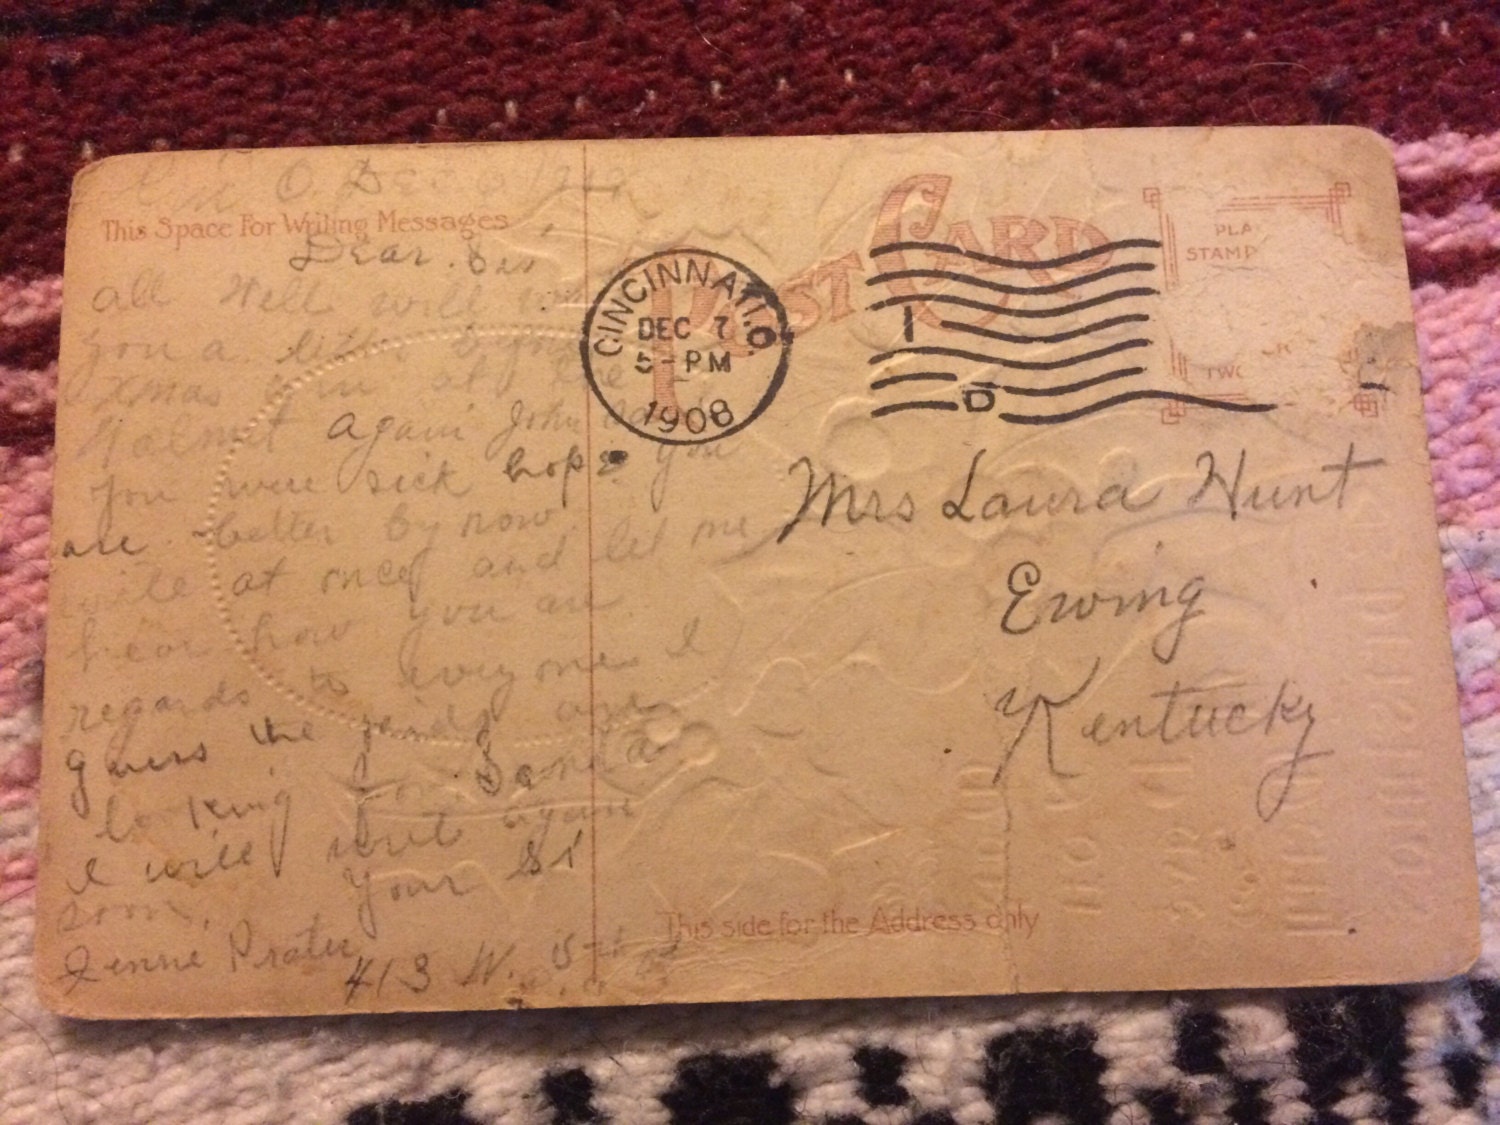 Cin O Dec 6
This Space For Writing Messages
Dear Sis
all well will
you a
Xmas
again John
you were sick hope you
are better by now
write at once and let me
hear how you are
regards to everyone I
guess the are
looking for Santa
I will write again
soon. Your Si
Jennie Prater
413 W. 5th St
POST CARD
CINCINNATI. O.
DEC 7
5 - PM
1908
1
D
PLA
STAMP
TWO
Mrs Laura Hunt
Ewing
Kentucky
This side for the Address only